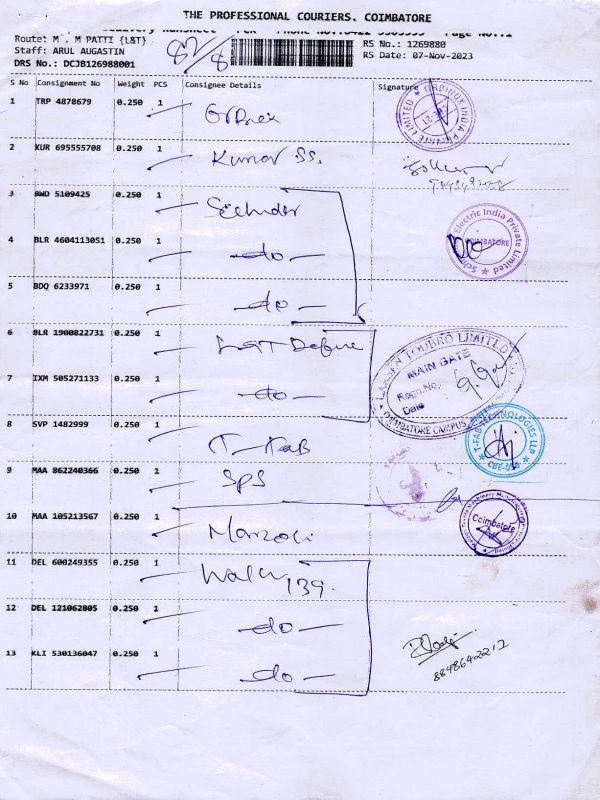 THE PROFESSIONAL COURIERS. COIMBATORE
Delivery Runsheet Page No.:1
Route: M . M PATTI {L&T}
RS No.: 1269880
Staff: ARUL AUGASTIN
RS Date: 07-Nov-2023
DRS No.: DCJB126988001
S No Consignment No Weight PCS Consignee Details Signature
1 TRP 4878679 0.250 1
ORBINOX INDIA PRIVATE LIMITED
2 KUR 695555708 0.250 1 Kumar SS.
3 BWD 5109425 0.250 1
4 BLR 4604113051 0.250 1 -do-
Electric India Private Limited
COIMBATORE
5 BDQ 6233971 0.250 1 -do-
6 BLR 1900822731 0.250 1 L&T Defence
LARSEN TOUBRO LIMITED
MAIN GATE
Regn.No.
Date
COIMBATORE CAMPUS
7 IXM 505271133 0.250 1 -do-
8 SVP 1482999 0.250 1 T-Fab
T-FAB TECHNOLOGIES LLP
CBE-050
9 MAA 862240366 0.250 1 SPS
10 MAA 105213567 0.250 1 Marzoli
Coimbatore
11 DEL 600249355 0.250 1 139.
12 DEL 121062805 0.250 1 -do-
13 KLI 530136047 0.250 1 -do-